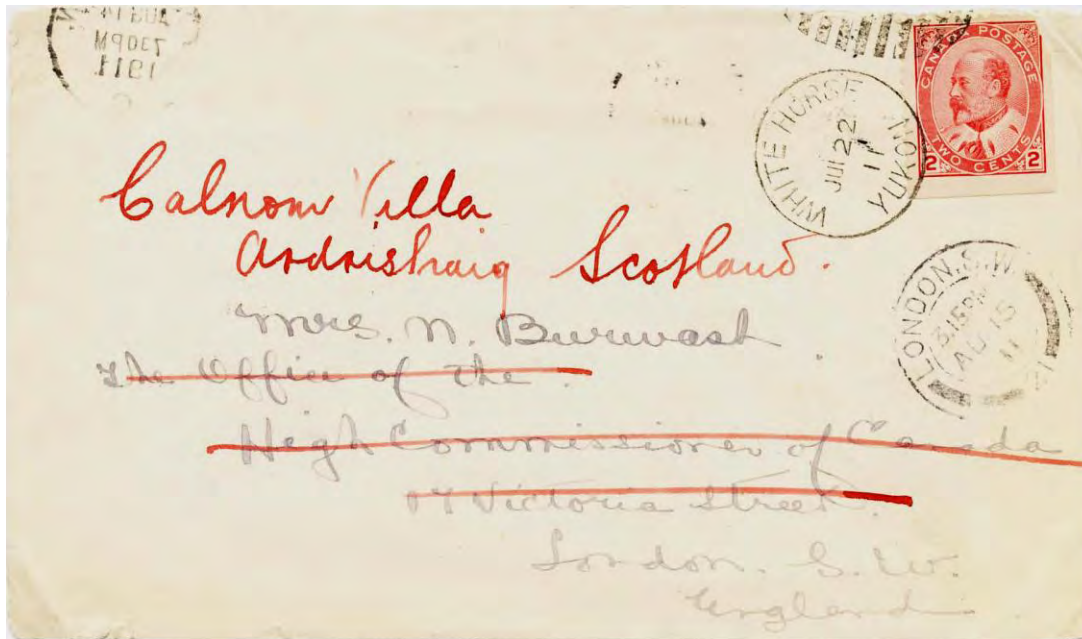 CANADA POSTAGE
TWO CENTS
2 2
WHITE HORSE
JUL 22
11
YUKON
LONDON. S.W.
3.15PM
AU 15
11
Calnom Villa
Ardrishaig Scotland.
Mrs. N. Burwash
The Office of the
High Commissioner of Canada
17 Victoria Street.
London. S. W.
England